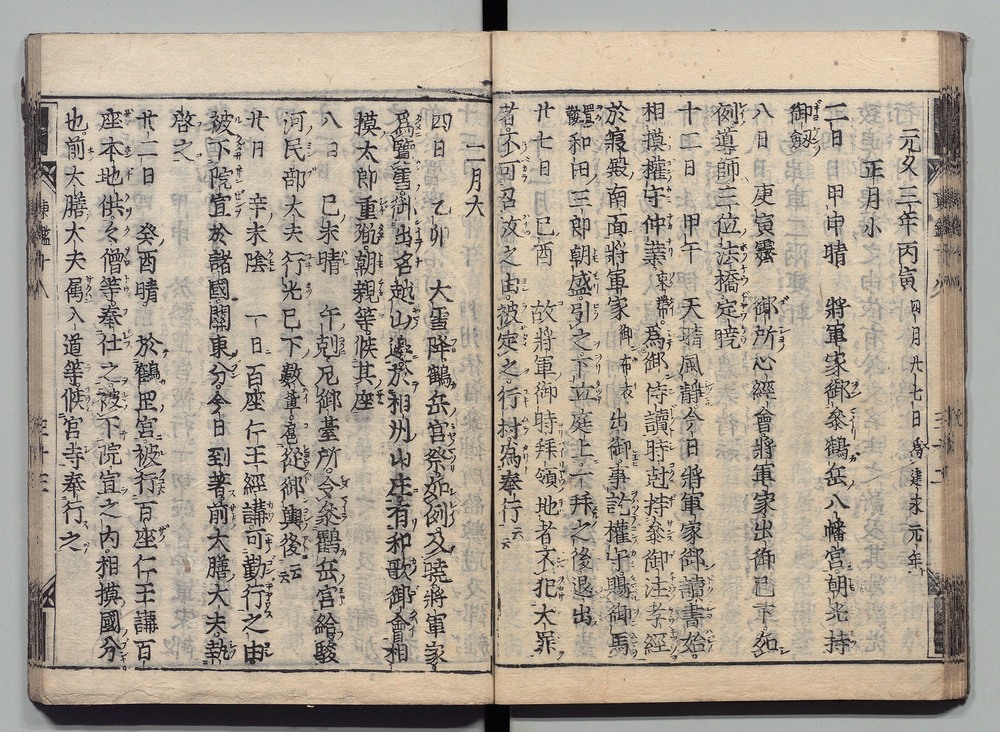 元久三年丙寅 四月廿七日為建永元年
正月小
二日 甲申晴 將軍家御參鶴岳八幡宮朝光持
御劔
八日 庚寅霽 御所心經會將軍家出御已下如
例導師三位法橋定暁
十二日 甲午 天晴風靜今日將軍家御讀書始
相摸權守仲業束帶為御侍讀時尅持參御注孝經
於寢殿南面將軍家御布衣出御事訖權守賜御馬
置鞍和田三郎朝盛引之下立庭上一拜之後退出
廿七日 己酉 故將軍御時拜領地者不犯大罪
者不可召放之由被定之行村為奉行云云
二月大
四日 乙卯 大雪降鶴岳宮祭如例及暁將軍家
為覽雪御出名越山邊於相州山庄有和歌御會相
摸太郎重胤朝親等候其座
八日 己未晴 午剋尼御臺所令參鶴岳宮給駿
河民部大夫行光已下數輩扈從御輿後云云
廿日 辛未陰 一日百座仁王經講可勤行之由
被下院宣於諸國關東分今日到著前大膳大夫執
啓之
廿二日 癸酉晴 於鶴岳宮被行百座仁王講百
座本地供々僧等奉仕之被下院宣之内相摸國分
也前大膳大夫属入道等候宮寺奉行之
東鑑十八
三十三